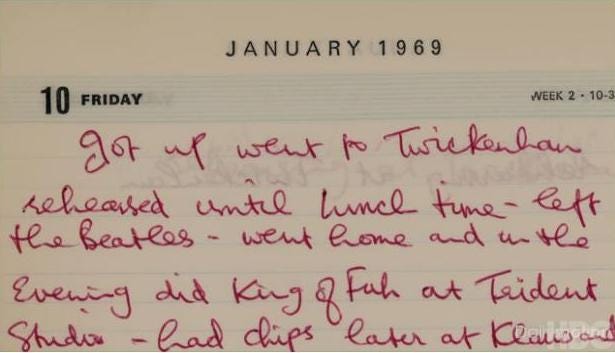 JANUARY 1969
10 FRIDAY WEEK 2 · 10-3
got up went to Twickenham
rehearsed until lunch time - left
the Beatles - went home and in the
Evening did King of Fuh at Trident
Studio - had chips later at Klaus a
HBO